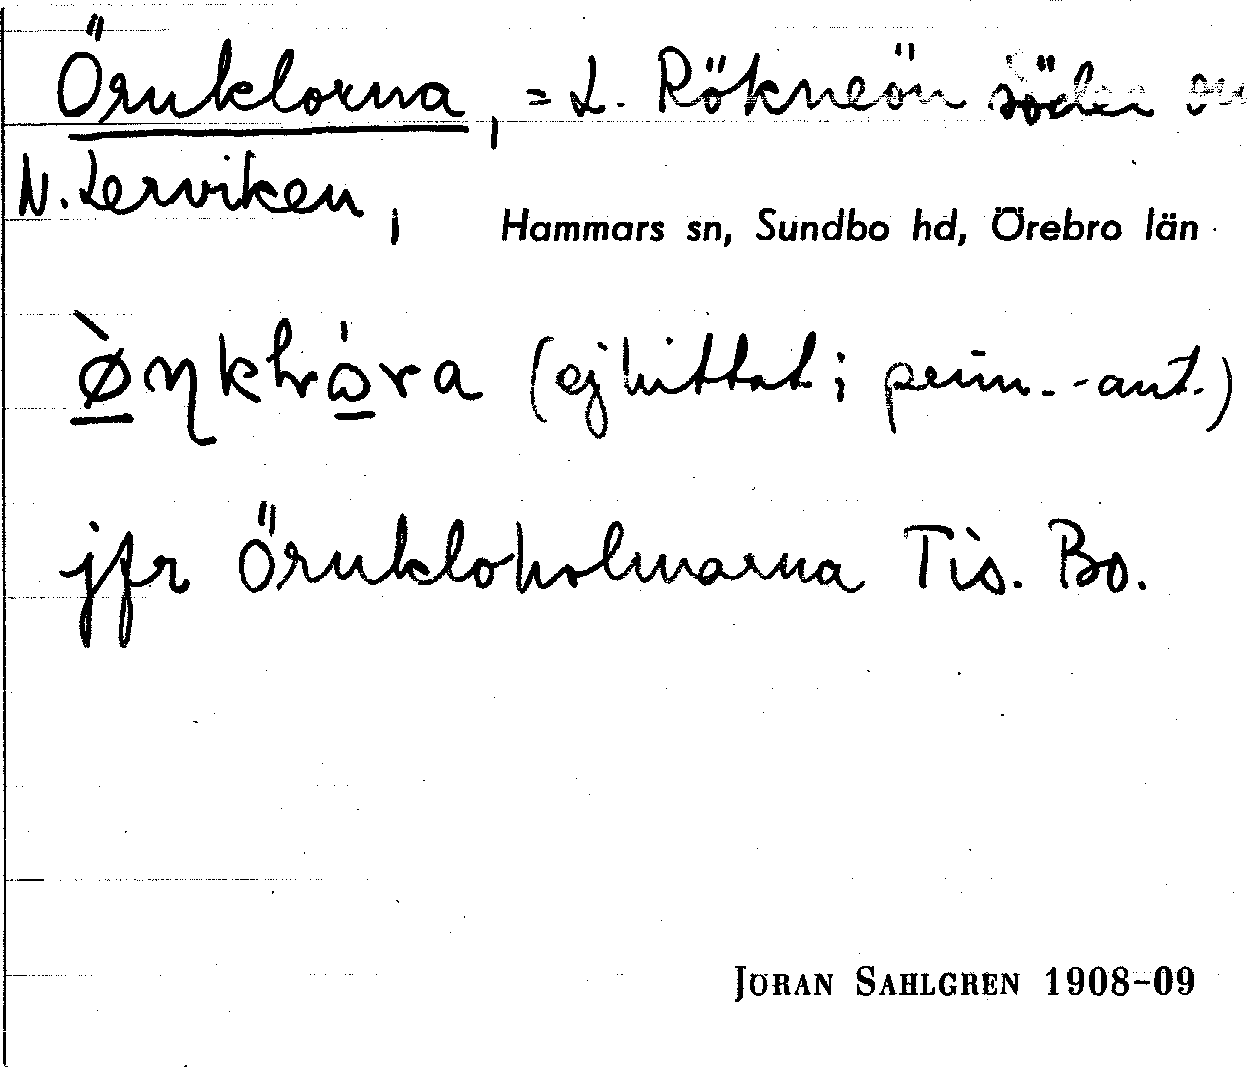 Örnklorna, = L. Rökneön söder om
N. Lerviken, Hammars sn, Sundbo hd, Örebro län
(ej hittat i penn.-ant.)
jfr Örnkloholmarna Tis. Bo.
JÖRAN SAHLGREN 1908-09